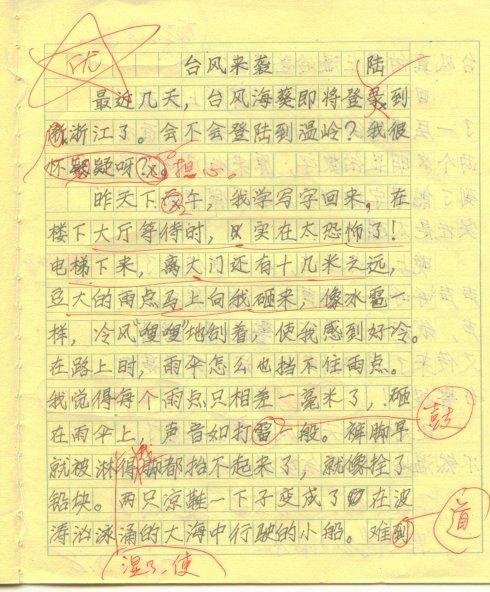 优
台风来袭 陆
最近几天，台风海葵即将登到
浙江了。会不会登陆到温岭？我很
怀疑呀？担心。
昨天下午，我学写字回来，在
楼下大厅等待时，实在太恐怖了！
电梯下来，离大门还有十几米之远，
豆大的雨点马上向我砸来，像冰雹一
样，冷风“嗖嗖”地刮着，使我感到好冷。
在路上时，雨伞怎么也挡不住雨点。
我觉得每个雨点只相差一毫米了，砸
在雨伞上，声音如打雷一般。裤脚早 鼓
就被淋得都抬不起来了，就像拴了
铅块。两只凉鞋一下子变成了在波
涛汹涌的大海中行驶的小船。难到 道
湿了，使